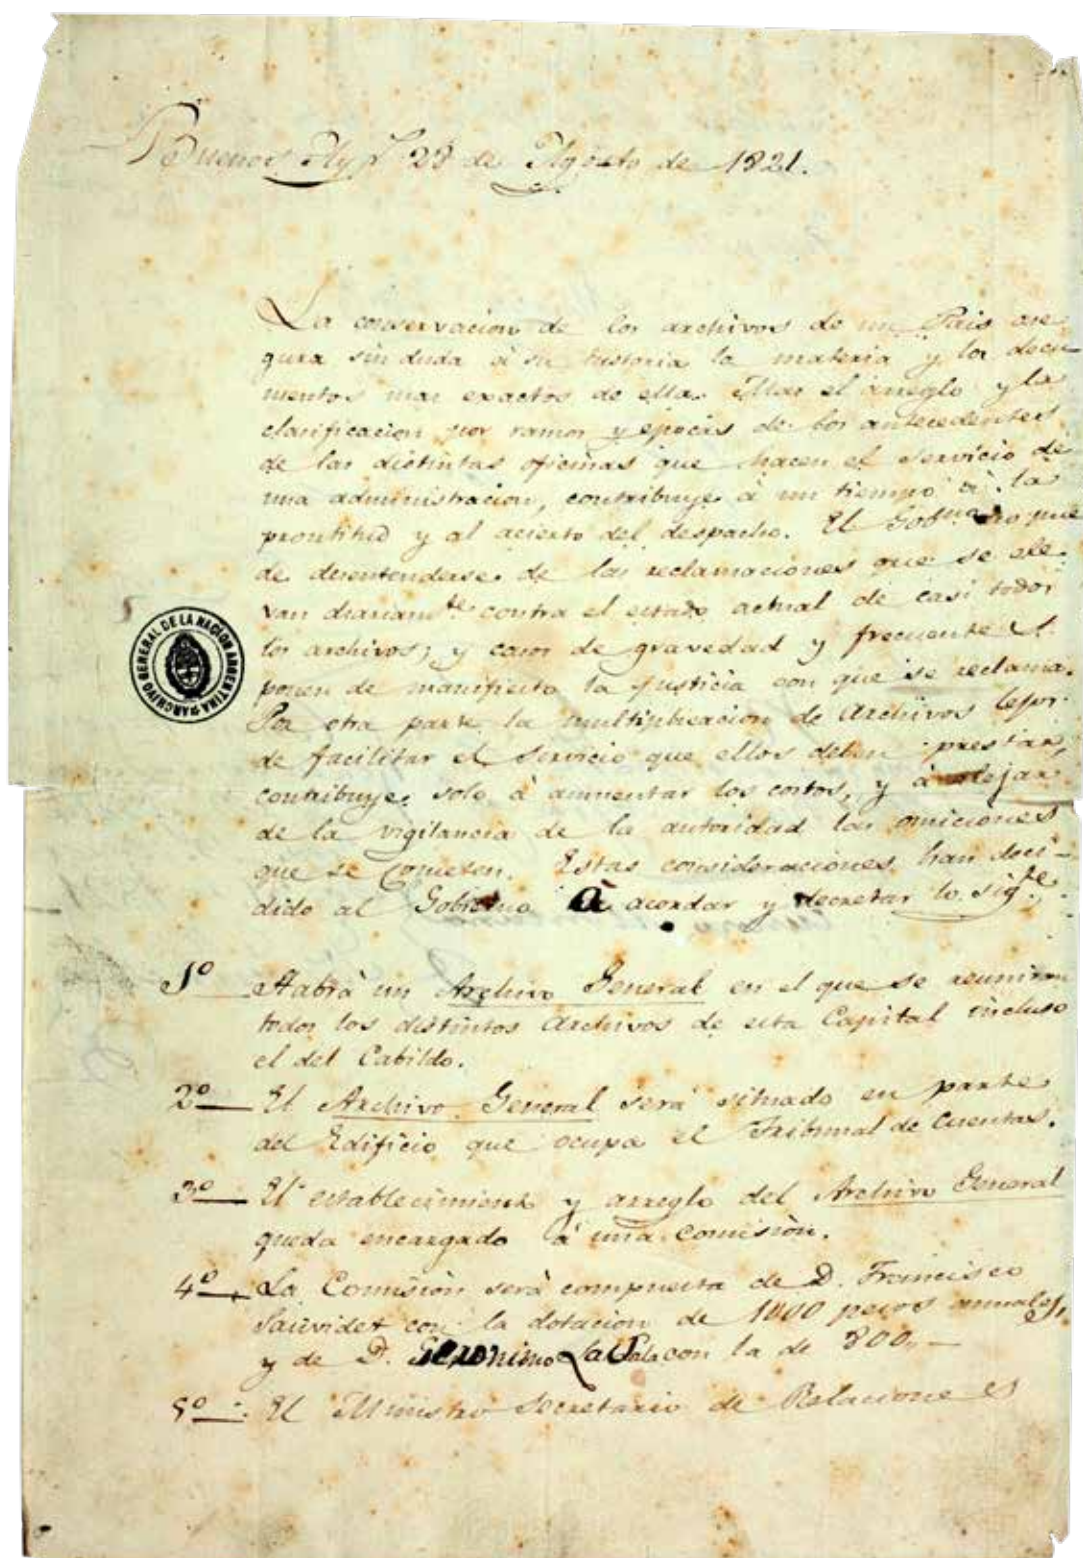 Buenos Ays 28 de Agosto de 1821.
La conservacion de los archivos de un Pais ase
gura sin duda à su historia la materia y los docu
mentos mas exactos de ella. Mas el arreglo y la
clasificacion por ramos y epocas de los antecedentes
de las distintas oficinas que hacen el servicio de
una administracion, contribuye à un tiempo à la
prontitud y al acierto del despacho. El Gobno no pue
de desentenderse de las reclamaciones que se ele
van diariamte contra el estado actual de casi todos
los archivos; y casos de gravedad y frecuentes
ponen de manifiesto la justicia con que se reclama.
Por otra parte la multiplicacion de Archivos lejos
de facilitar el Servicio que ellos deben prestar,
contribuye solo à aumentar los costos, y à alejar
de la vigilancia de la autoridad las omiciones
que se cometen. Estas consideraciones han deci-
dido al Gobierno à acordar y decretar lo sigte.
ARCHIVO GENERAL DE LA NACION ARGENTINA
1º Habrà un Archivo General en el que se reuniran
todos los distintos Archivos de esta Capital incluso
el del Cabildo.
2º El Archivo General serà situado en parte
del Edificio que ocupa el Tribunal de Cuentas.
3º El establecimiento y arreglo del Archivo General
queda encargado à una comisiòn.
4º La Comisiòn serà compuesta de D. Francisco
Saùvidet con la dotacion de 1000 pesos annales,
y de D. Geronimo Lasala con la de 800.-
5º El Ministro Secretario de Relaciones